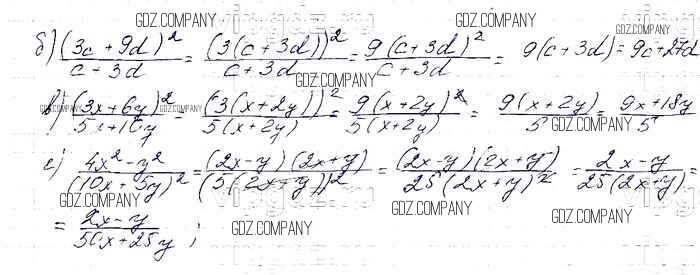 б) (3c + 9d)² / c + 3d = (3(c + 3d))² / c + 3d = 9(c + 3d)² / c + 3d = 9(c + 3d) = 9c + 27d
в) (3x + 6y)² / 5x + 10y = (3(x + 2y))² / 5(x + 2y) = 9(x + 2y)² / 5(x + 2y) = 9(x + 2y) / 5 = 9x + 18y / 5
е) 4x² - y² / (10x + 5y)² = (2x - y)(2x + y) / (5(2x + y))² = (2x - y)(2x + y) / 25(2x + y)² = 2x - y / 25(2x + y) =
= 2x - y / 50x + 25y ;
GDZ.COMPANY
GDZ.COMPANY
GDZ.COMPANY
GDZ.COMPANY
GDZ.COMPANY
GDZ.COMPANY
GDZ.COMPANY
GDZ.COMPANY
GDZ.COMPANY
GDZ.COMPANY
GDZ.COMPANY
GDZ.COMPANY